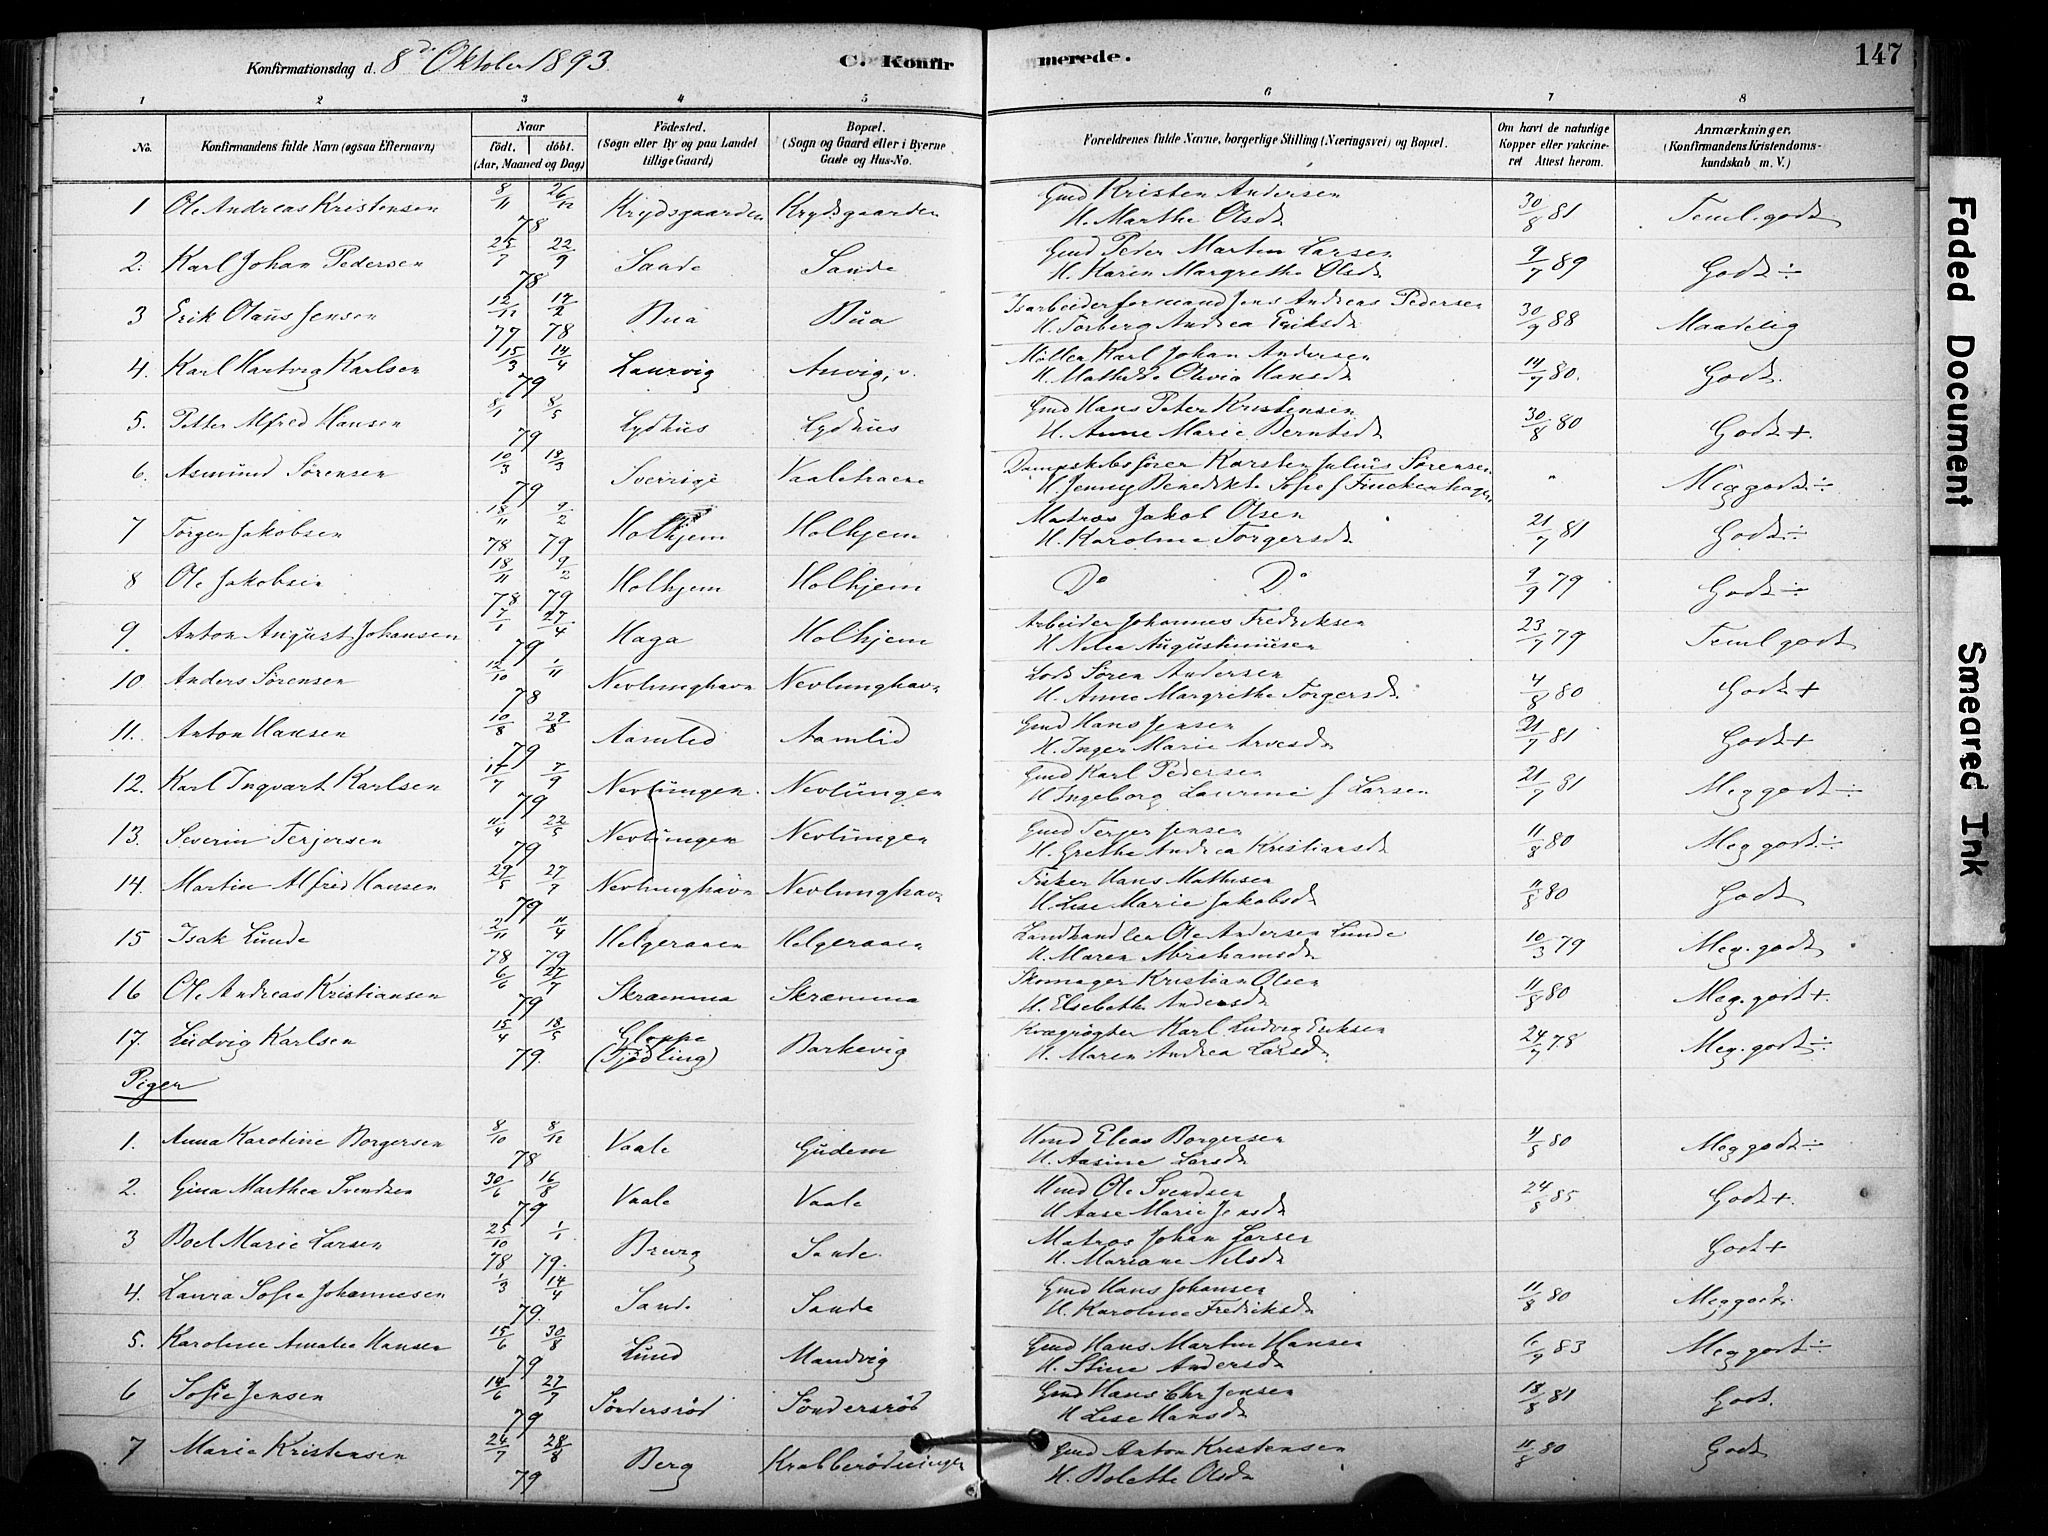 Konfirmationsdag d. 8de Oktober 1893. C. Konfirmerede. 147
1 2 3 4 5 6 7 8
No. Konfirmandens fulde Navn (ogsaa Efternavn). Naar født, døbt. (Aar, Maaned og Dag) Fødested. (Sogn eller By og paa Landet tillige Gaard) Bopæl. (Sogn og Gaard eller i Byerne Gade og Hus-No. Forældrenes fulde Navne, borgerlige Stilling (Næringsvei) og Bopæl. Om havt de naturlige Kopper eller vakcineret Attest herom. Anmærkninger. (Konfirmandens Kristendomskundskab m. V.)
1 Ole Andreas Kristensen 8/11 26/12 78 Krydsgaarden Krydsgaarden Gmd Kristen Andersen H. Marthe Olsdr 30/8 81 Teml. godt
2. Karl Johan Pedersen 25/7 22/9 78 Sande Sande Gmd Peder Martin Larsen H. Karen Margrethe Olsdr 9/7 89 Godt ÷
3 Erik Olaus Jensen 12/12 17/2 77 78 Bua Bua Isarbeiderformand Jens Andreas Pedersen H. Torberg Andrea Eriksdr 30/9 88 Maadelig
4. Karl Hartvig Karlsen 15/3 14/4 79 Laurvig Anvig, v. Møller Karl Johan Andersen H. Mathilde Olivia Hansdr 14/7 80. Godt.
5. Petter Alfred Hansen 8/1 8/5 79 Lydhus Lydhus Gmd Hans Peter Kristensen H. Anne Marie Berntsdr 30/8 80 Godt +
6. Asmund Sørensen 10/3 18/3 79 Sverrige Vaaletraene Dampskibsfører Karsten Julius Sørensen H. Jenny Benedikte Sofie f Finckenhagen " Meg godt ÷
7 Torger Jakobsen 18/11 9/2 78 79 Holtjem Holhjem Matros Jakob Olsen H. Karoline Torgersdr 21/7 81 Godt ÷
8 Ole Jakobsen 18/11 9/2 78 79 Holhjem Holhjem Do Do 9/9 79 Godt ÷
9. Anton August Johansen 7/1 27/4 79 Haga Holhjem Arbeider Johannes Fredriksen H Nilia Augustinusen 23/7 79 Teml godt
10 Anders Sørensen 12/10 1/11 78 Nevlunghavn Nevlunghavn Lods Søren Andersen H. Anne Margrethe Torgersdr 4/8 80 Godt +
11. Anton Hansen 10/8 29/8 79 Aamlid Aamlid Gmd Hans Jensen H. Inger Marie Arvesdr 21/7 81 Godt +
12. Karl Ingvart Karlsen 17/7 7/9 79 Nevlungen. Nevlungen Gmd Karl Pedersen H Ingeborg Laurine f Larsen 21/7 81 Meg godt ÷
13. Severin Terjersen 11/4 22/5 79 Nevlungen Nevlungen Gmd Terjer Jensen H. Grethe Andrea Kristiansdr 11/8 80 Meg godt ÷
14. Martin Alfred Hansen 29/5 27/7 79 Nevlunghavn Nevlunghavn Fisker Hans Mathisen H. Lise Marie Jakobsdr 11/8 80 Godt
15 Isak Lunde 2/11 11/4 78 79 Helgeraaen Helgeraaen Landhandler Ole Andersen Lunde H. Maren Abrahamsdr 10/3 79 Meg. godt
16 Ole Andreas Kristiansen 6/6 27/7 79 Skræmma Skræmma Skomager Kristian Olsen H. Elsebeth Andersdr 11/8 80 Meg. godt +
17. Ludvig Karlsen 15/4 18/5 79. Gloppe (Tjødling) Barkevig Kvægrøgter Karl Ludvig Eriksen H. Maren Andrea Larsdr 24/7 78 Meg. godt ÷
Piger
1. Anna Karoline Borgersen 8/10 8/12 78 Vaale Gudem Hmd Elias Borgersen H. Aasine Larsdr 4/8 80 Meg godt ÷
2. Gina Marthea Svendsen 30/6 16/8 79 Vaale Vaale Hmd Ole Svendsen H Aase Marie Jensdr 24/8 85. Godt +
3 Boel Marie Larsen 25/10 1/1 78 79. Breurg Sande. Matros Johan Larsen H. Mariane Nilsdr Godt +
4. Laura Sofie Johannesen 1/3 14/4 79. Sande Sande Gmd Hans Johansen H. Karoline Fredriksdr 11/8 80 Meg godt.
5. Karoline Amalie Hansen 15/6 30/8 79 Lund Mandvig Gmd Hans Martin Hansen H. Stine Andersdr 6/9 83 Meg godt ÷
6 Sofie Jensen 14/6 27/7 79 Søndersrød Søndersrød Gmd Hans Chr Jensen H Lise Hansdr 18/8 81 Godt.
7 Marie Kristensen 24/7 28/8 79 Berg Krabberødningen Gmd Anton Kristensen H. Bolette Olsdr 11/8 80 Godt
Faded Document
Smeared Ink